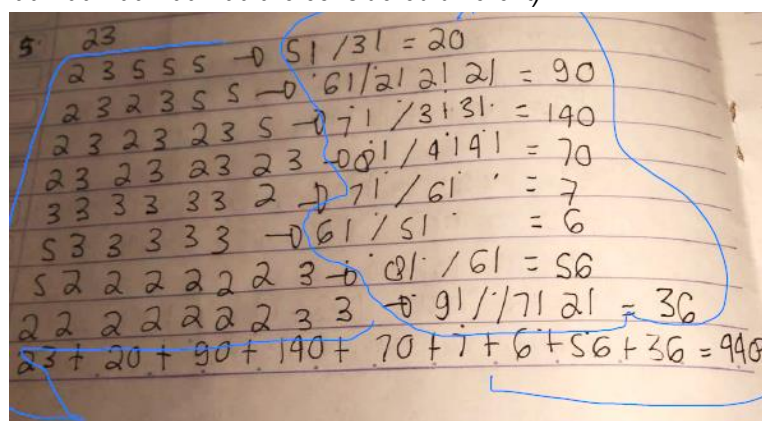 5. 23
2 3 5 5 5 → 5! / 3! = 20
2 3 2 3 5 5 → 6! / 2! 2! 2! = 90
2 3 2 3 2 3 5 → 7! / 3! 3! = 140
23 23 23 23 → 8! / 4! 4! = 70
3 3 3 3 3 3 2 → 7! / 6! = 7
5 3 3 3 3 3 → 6! / 5! = 6
5 2 2 2 2 2 2 3 → 8! / 6! = 56
2 2 2 2 2 2 2 3 3 → 9! / 7! 2! = 36
23 + 20 + 90 + 140 + 70 + 7 + 6 + 56 + 36 = 448